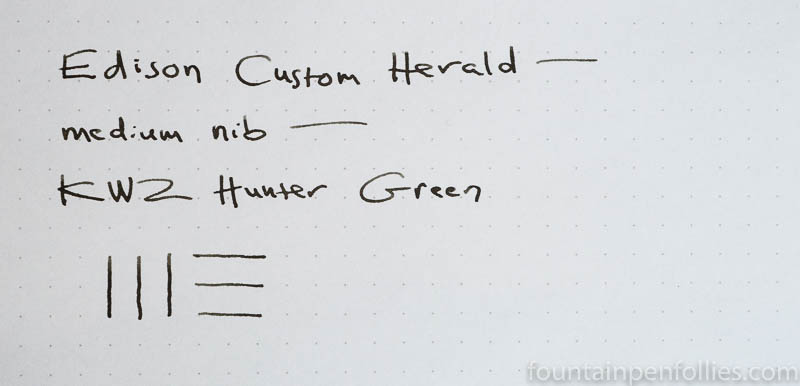 Edison Custom Herald —
medium nib —
KWZ Hunter Green
fountainpenfollies.com